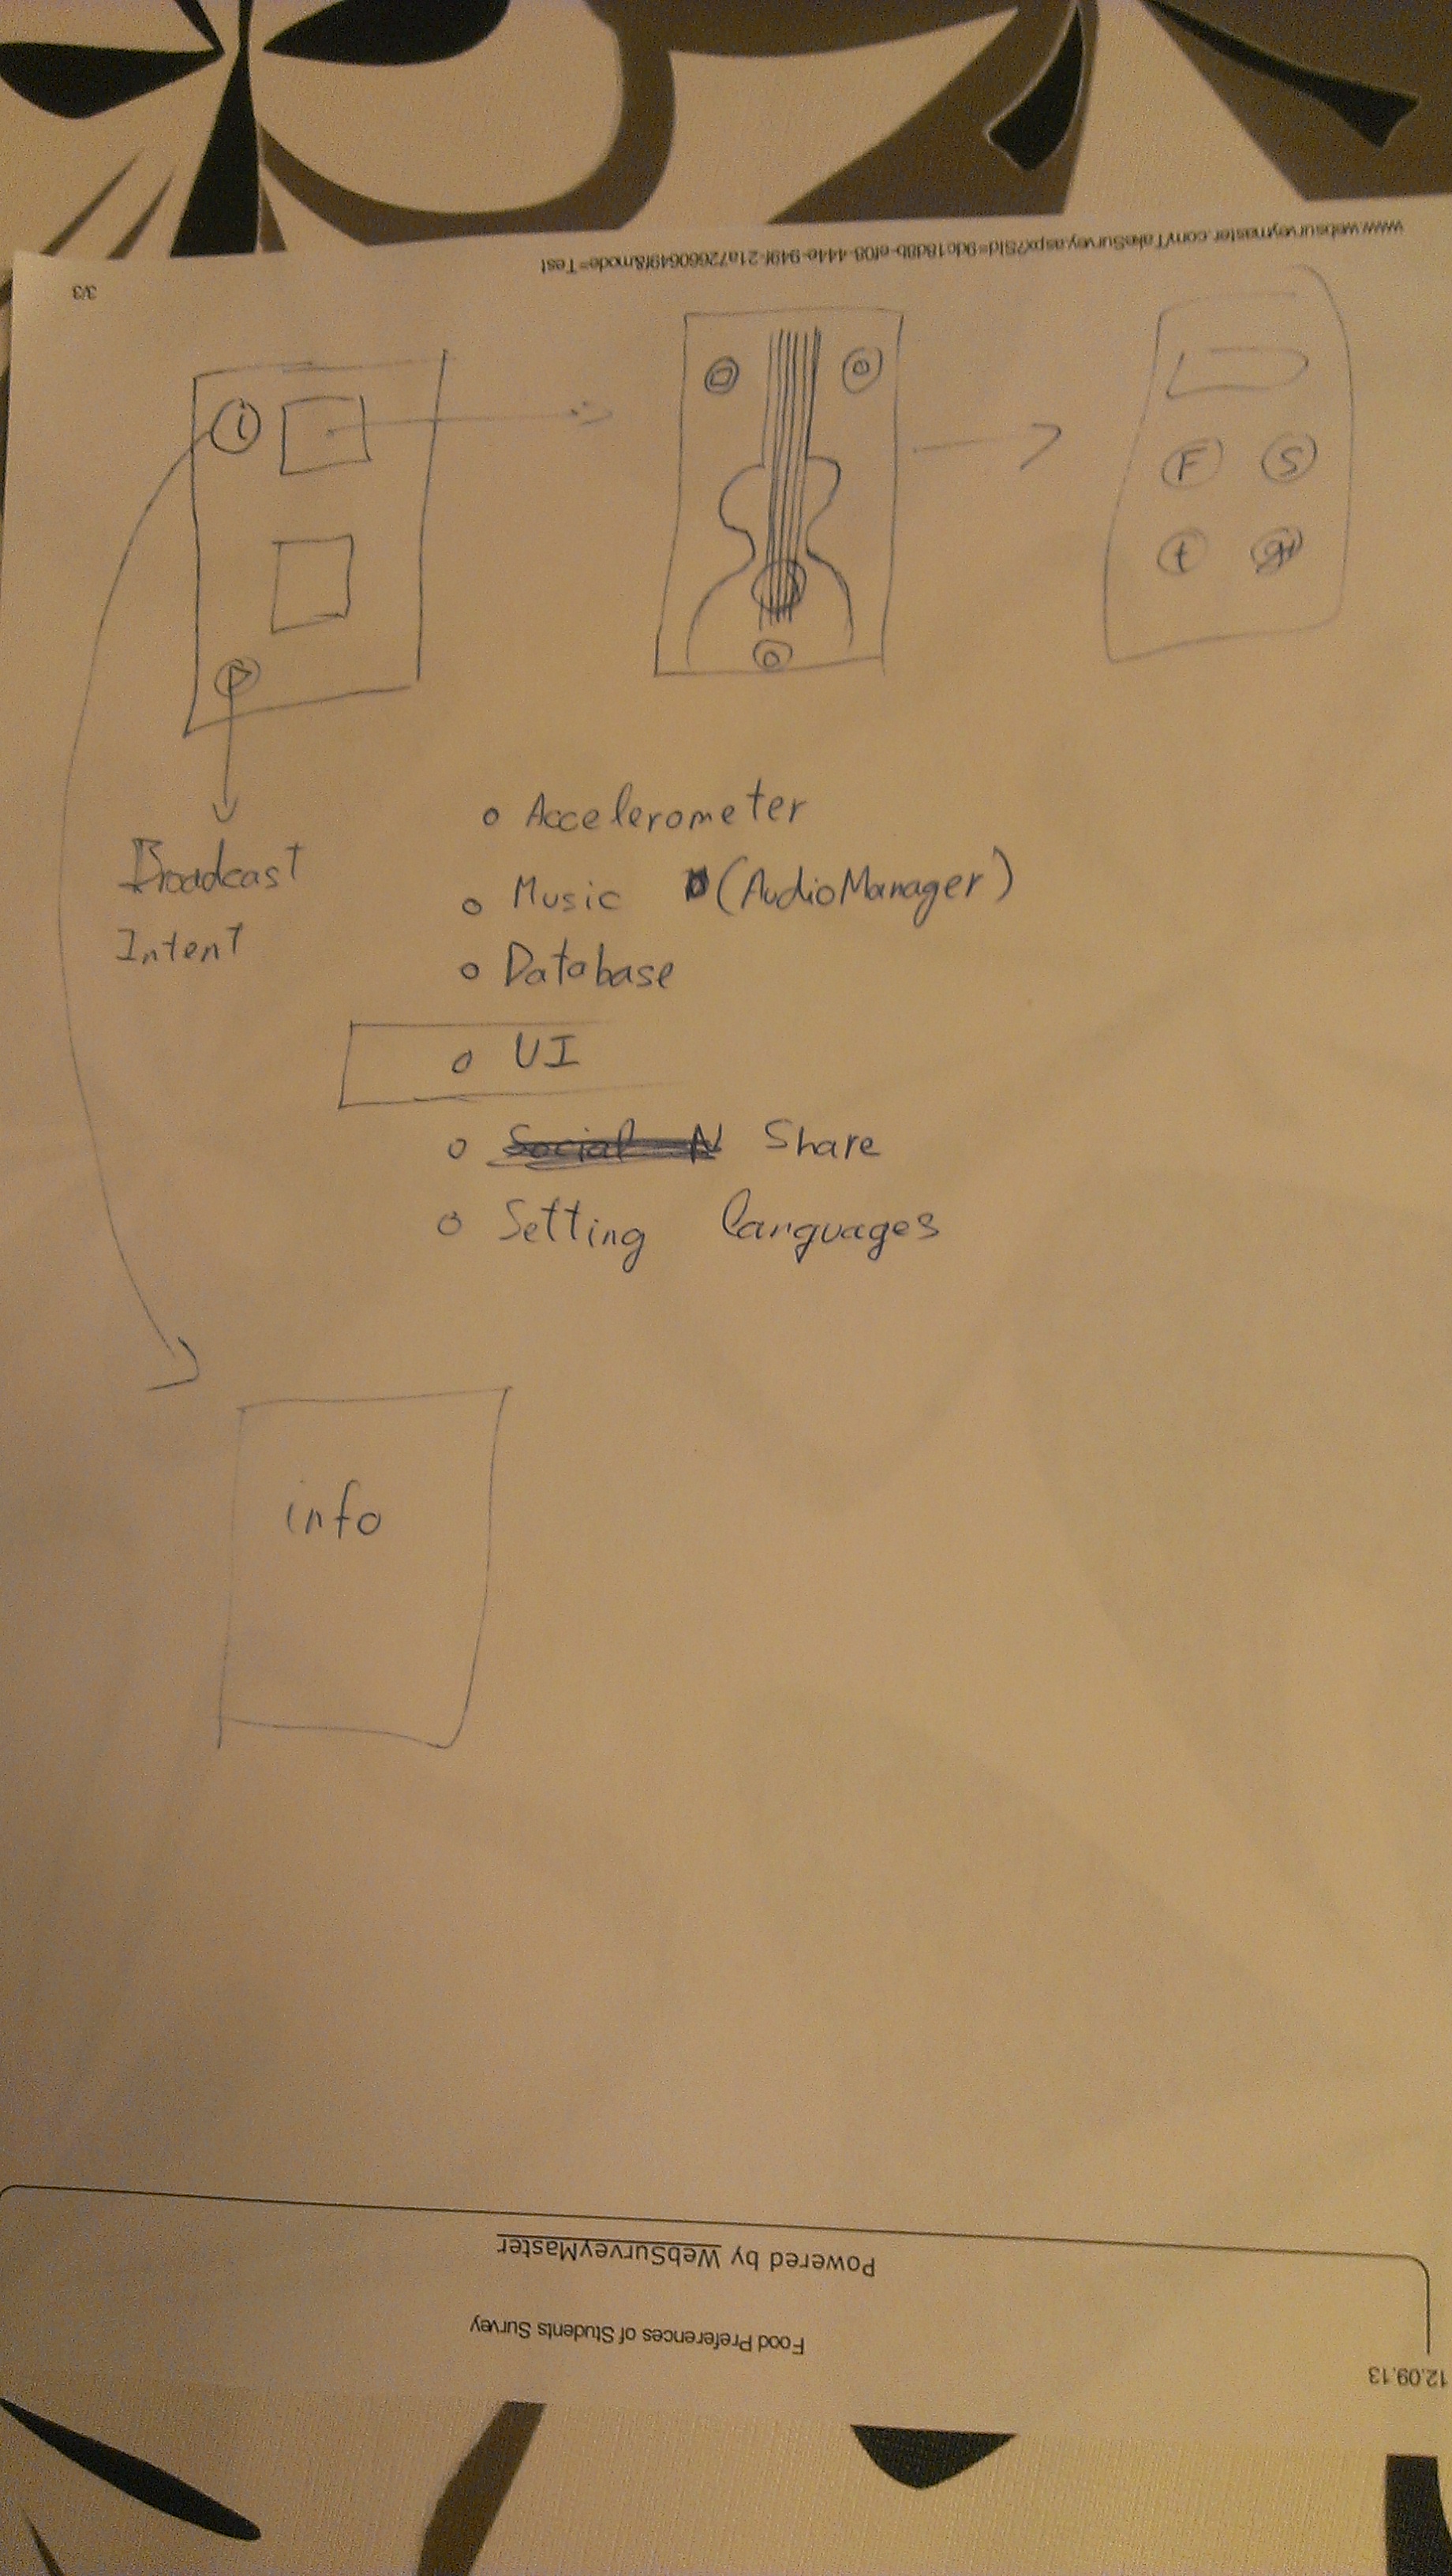 www.websurveymaster.com/TakeSurvey.aspx?SId=9dc18d8b-ef08-444e-949f-21a72660649f&mode=Test
3/3
i
F S
t
P
Broadcast
Intent
o Accelerometer
o Music (AudioManager)
o Database
o UI
o Social N Share
o Setting languages
info
Powered by WebSurveyMaster
Food Preferences of Students Survey
12.09.13